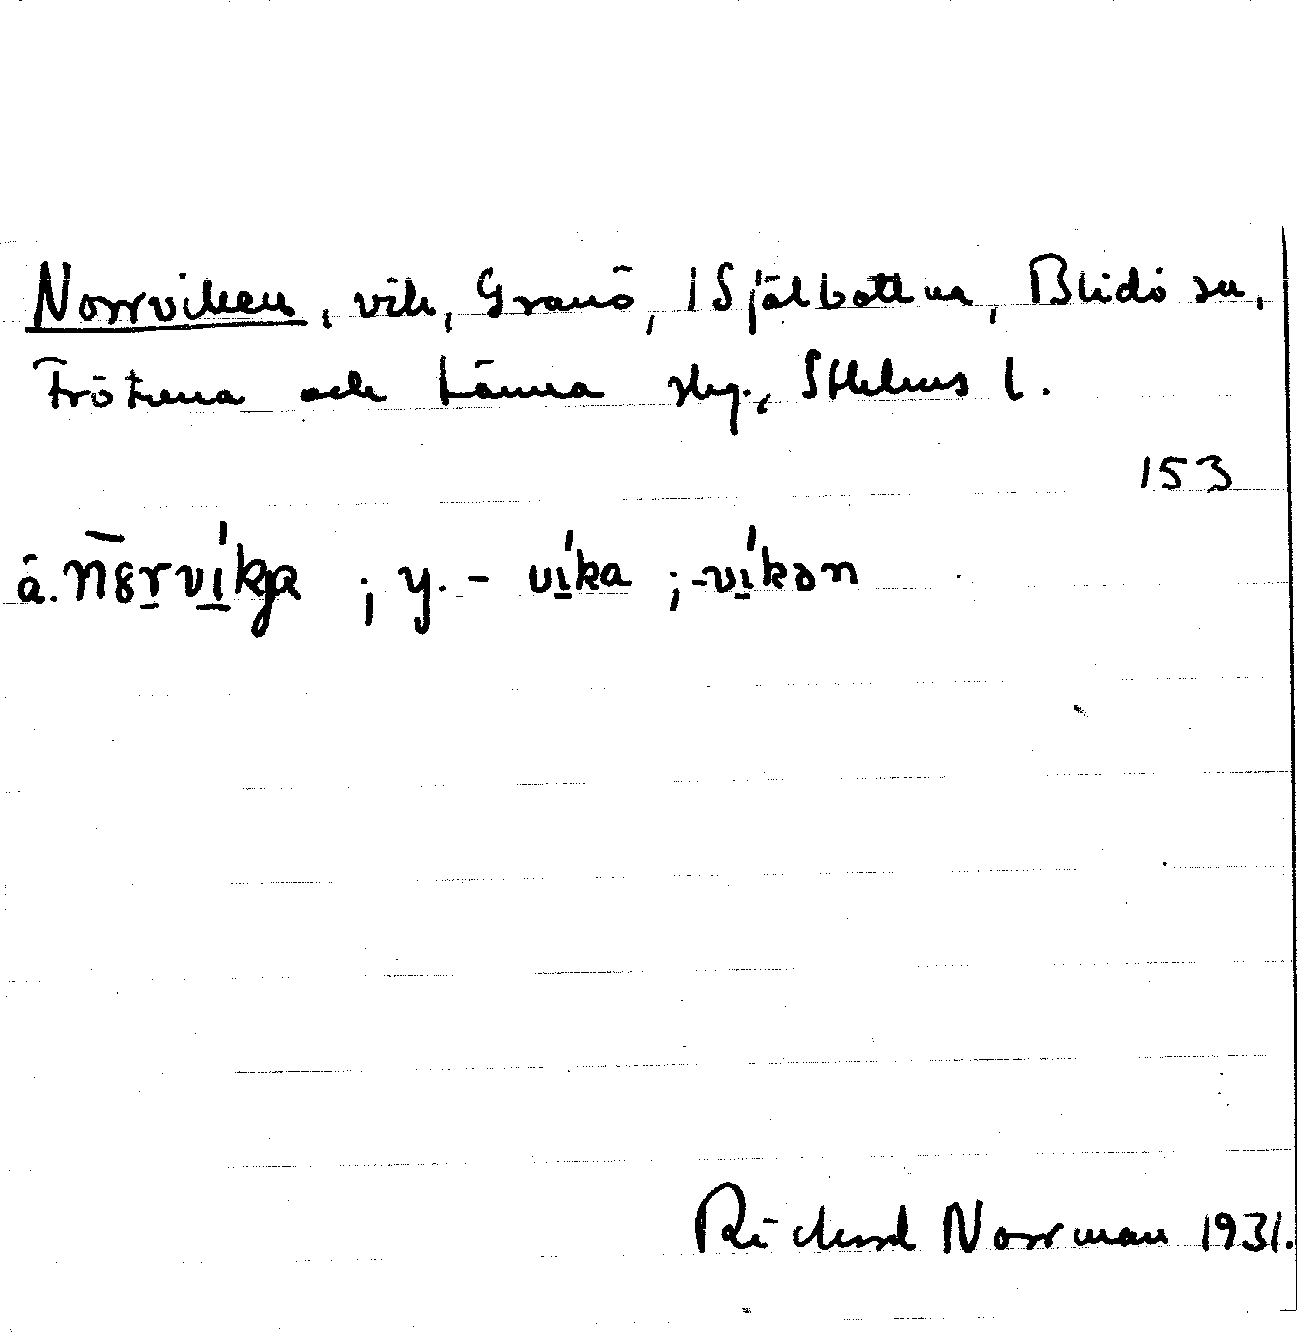 Norrviken, vik, Granö, 1 Själbottna, Blidö sn,
Frötuna och Länna skg., Sthlms l.
153
å. ; y. - vı́ka ; -vı́kən
Richard Norrman 1931.